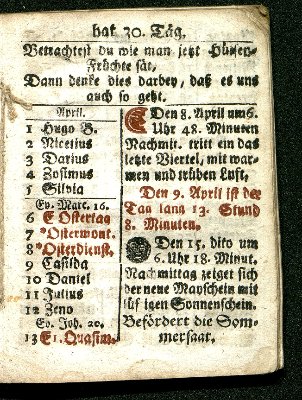 hat 30. Täg.
Betrachtest du wie man jetzt Hülsen-
Früchte sät,
Dann denke dies darbey, daß es uns
auch so geht.
April.
1 Hugo B.
2 Nicetius
3 Darius
4 Zosimus
5 Silvia
Ev. Marc. 16.
6 E Ostertag
7 *Ostermont.
8 *Osterdienst.
9 Casilda
10 Daniel
11 Julius
12 Zeno
Ev. Joh. 20.
13 E1. Quasim.
Den 8. April um 6.
Uhr 48. Minuten
Nachmit. tritt ein das
letzte Viertel, mit war-
men und trüben Luft,
Den 9. April ist der
Tag lang 13. Stund
8. Minuten.
Den 15. dito um
6. Uhr 18. Minut.
Nachmittag zeiget sich
der neue Mayschein mit
Sonnenschein.
Befördert die Som-
mersaat.